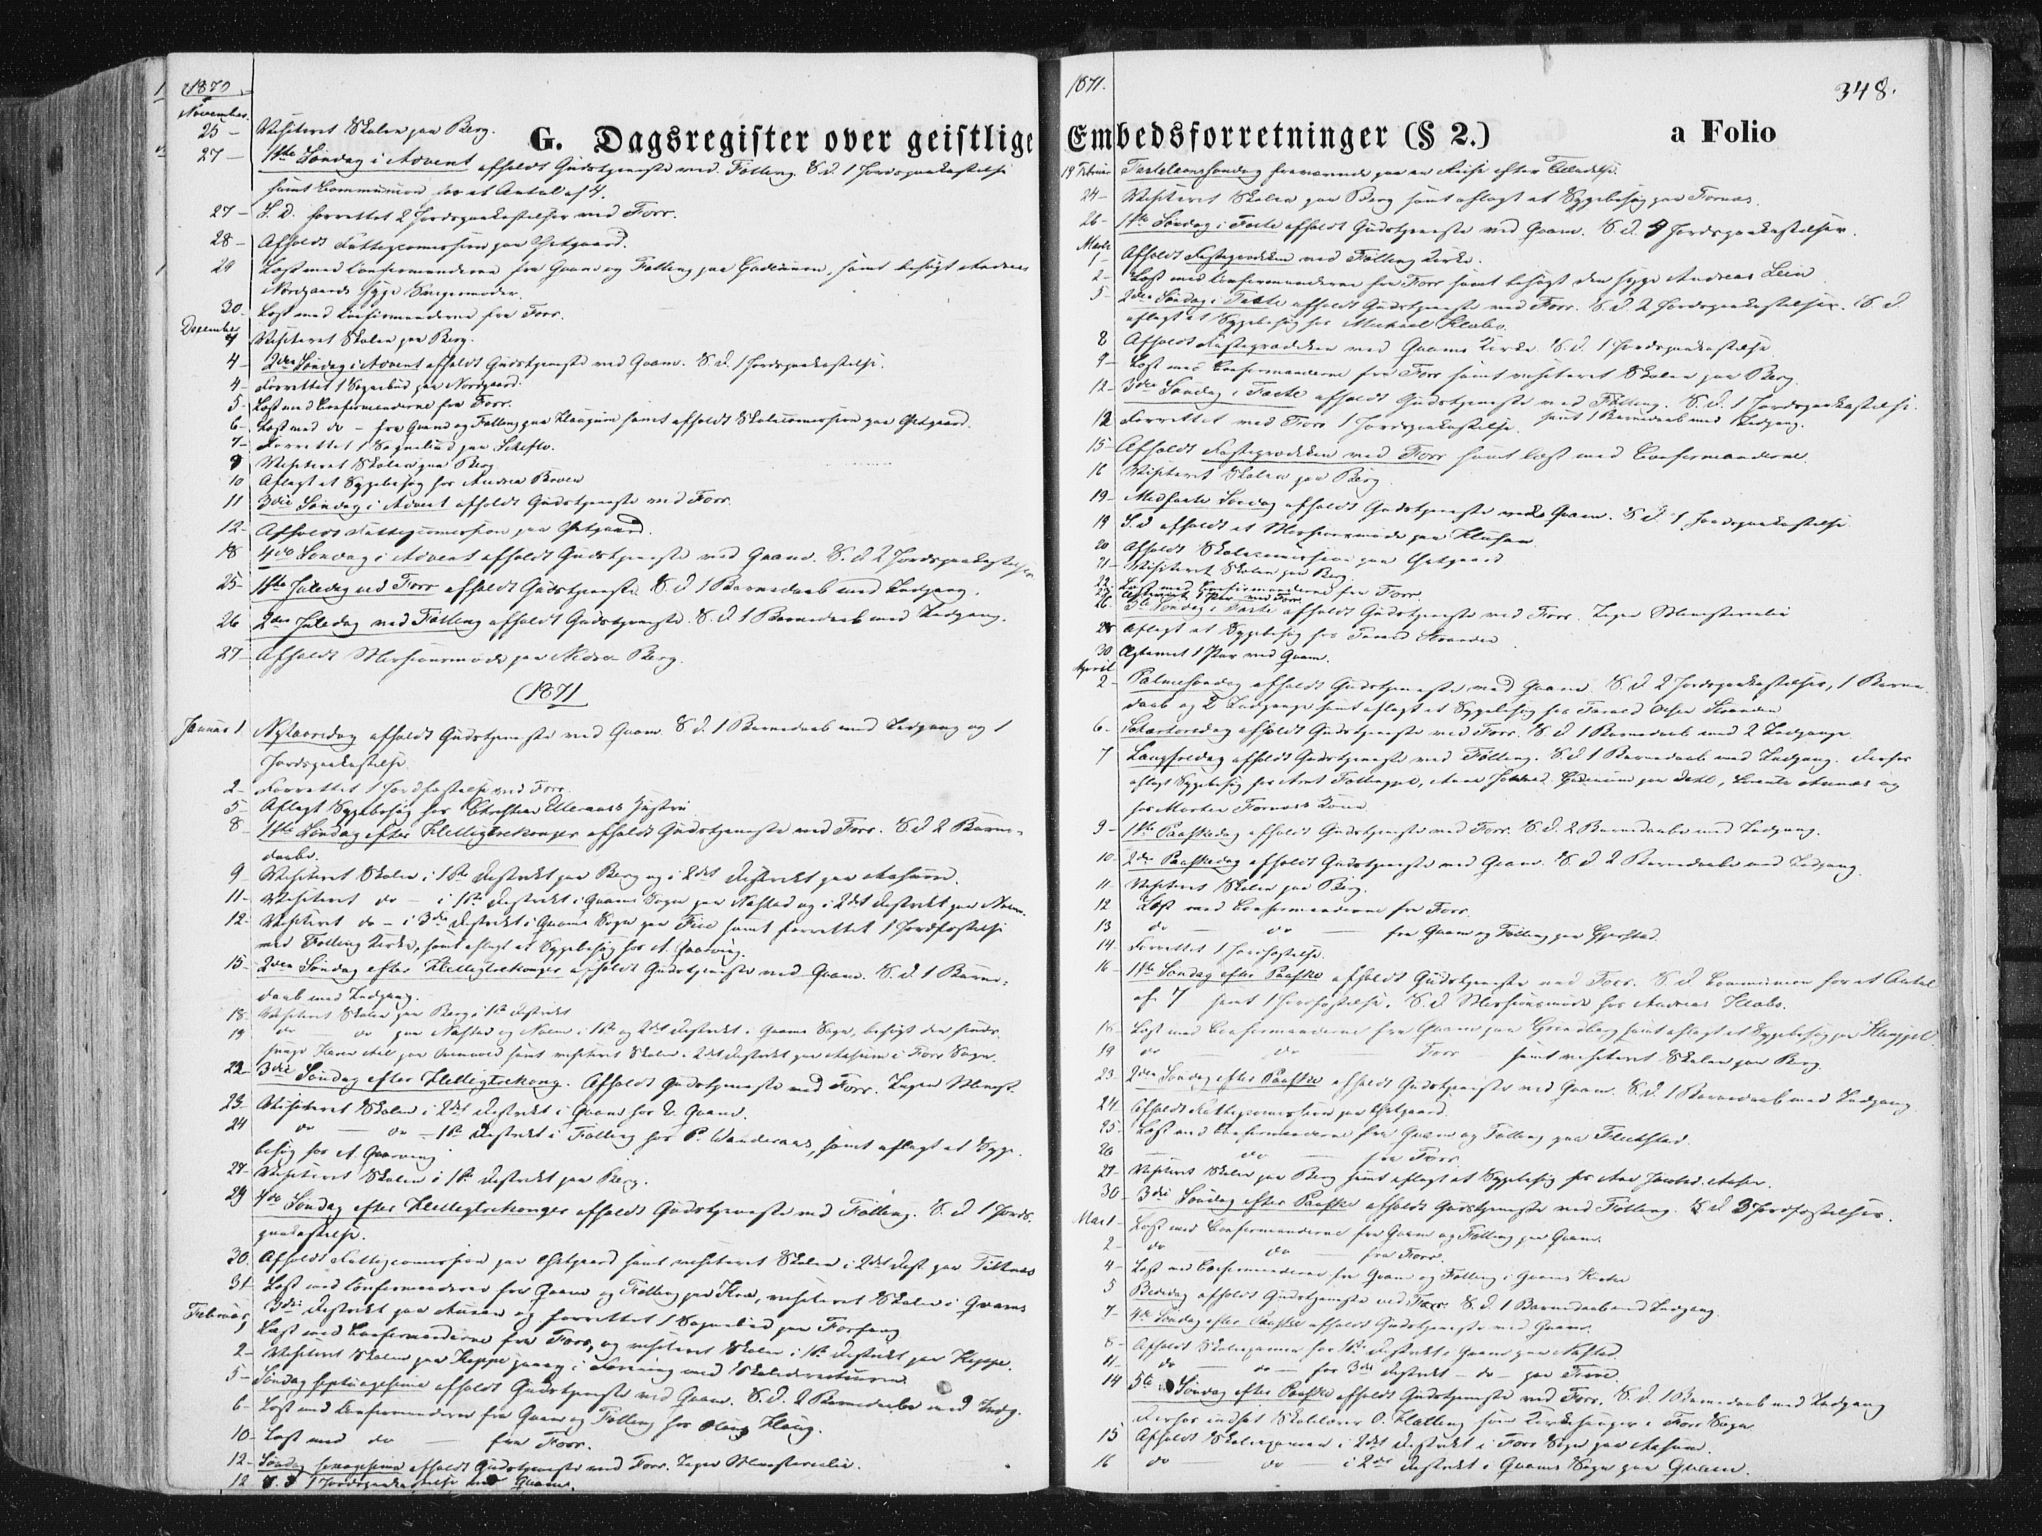 1870
November.
25 - Visiteret Skolen paa Berg.
G. Dagsregister over geistlige
27 - 1ste Søndag i Advent afholdt Gudstjeneste ved Følling. S. d. 1 Jordspaakastelse
samt Communion for et Antal af 4.
27 - S. d. forrettet 2 Jordspaakastelser ved Forr.
28 - Afholdt Fattigcomission paa
29 Læst med Confirmanderne fra Qvam og Følling paa samt besøgt Andreas
Nordgaards syge Svigermoder.
30. Læst med Confirmanderne fra Forr.
December
Visiteret Skolen paa Berg.
4 - 2den Søndag i Advent afholdt Gudstjeneste ved Qvam. S. d. 1 Jordspaakastelse.
4 - Forrettet 1 Sognebud paa Nordgaard.
5 - Læst med Confirmanderne fra Forr.
6 - Læst med do - fra Qvam og Følling paa samt afholdt Skolecomission paa
7 - Forrettet 1 Sognebud paa
9 Visiteret Skolen paa Berg
10 Aflagt et Sygebesøg hos Andrea
11 3die Søndag i Advent afholdt Gudstjeneste ved Forr.
12 - Afholdt Fattigcomission paa
18 4de Søndag i Advent afholdt Gudstjeneste ved Qvam. S. d. 2 Jordspaakastelser.
25 - 1ste Juledag ved Forr afholdt Gudstjeneste S. d. 1 Barnedaab med Indgang.
26 2den Juledag ved Følling afholdt Gudstjeneste. S. d. 1 Barnedaab med Indgang.
27 - Afholdt Missionsmøde paa Nedre Berg.
(1871)
Januar 1 Nytaarsdag afholdt Gudstjeneste ved Qvam. S. d. 1 Barnedaab med Indgang og 1
Jordspaakastelse.
2 - Forrettet 1 Jordfæstelse ved Forr.
5 Aflagt Sygebesøg hos Christian Hustru
8 - 1ste Søndag efter Helligtrekonger afholdt Gudstjeneste ved Forr. S. d. 2 Barne-
daabe.
9 - Visiteret Skolen i 1ste Distrikt paa Berg og i 2det Distrikt paa
11 - Visiteret do - i 1ste Distrikt i Qvams Sogn paa og i 2det Distrikt paa
12 - Visiteret do - i 3die Distrikt i Qvams Sogn paa samt forrettet 1 Jordfæstelse
ved Følling Kirke, samt aflagt et Sygebesøg hos A.
15 - 2den Søndag efter Helligtrekonger afholdt Gudstjeneste ved Qvam. S. d. 1 Barne-
daab med Indgang.
18 - Visiteret Skolen paa Berg i 1ste Distrikt
19 do - do paa og i 1ste og 2det Distrikt i Qvams Sogn, besøgt den
samt visiteret Skolen i 2det Distrikt paa i Forr Sogn.
22 - 3die Søndag efter Helligtrekong. Afholdt Gudstjeneste ved Forr. Ingen Minist.
23 - Visiteret Skolen i 2det Distrikt i Qvam hos
24 do - do - 1ste Distrikt i Følling hos P. samt aflagt et Syge-
besøg hos A.
27 - Visiteret Skolen i 1ste Distrikt paa Berg.
29 4de Søndag efter Helligtrekonger afholdt Gudstjeneste ved Følling. S. d. 1 Jords-
paakastelse.
30 - Afholdt Fattigcomission paa samt visiteret Skolen i 2det Dist. paa
31 - Læst med Confirmanderne fra Qvam og Følling paa visiteret Skolen i Qvams
3die Distrikt paa og forrettet 1 Sognebud paa
Februar
1 Læst med Confirmanderne fra Forr, og visiteret Skolen i 1ste Distrikt paa
2 - Visiteret Skolen paa i Forening med Skoledirecteuren
5 - Søndag septuagesima afholdt Gudstjeneste ved Qvam. S. d. 2 Barnedaabe med Indg.
6 - Læst med Confirmanderne fra Qvam og Følling hos Haug.
10 - Læst med do - fra Forr.
12 - Søndag sexagesima afholdt Gudstjeneste ved Forr. Ingen Ministerialia.
12 S. d. 1 Jordspaakastelse ved Qvam.
1871.
348.
Embedsforretninger (§ 2.) a Folio
19 Februar Fastelavnssøndag fraværende paa en Reise efter Tilladelse.
24 - Visiteret Skolen paa Berg samt aflagt et Sygebesøg paa
26 - 1ste Søndag i Faste afholdt Gudstjeneste ved Qvam. S. d. 4 Jordspaakastelser.
Marts
1 - Afholdt Fasteprædiken ved Følling Kirke.
2 - Læst med Confirmanderne fra Forr samt besøgt den syge Andreas Lein
5 2den Søndag i Faste afholdt Gudstjeneste ved Forr. S. d. 2 Jordspaakastelser. S. d.
aflagt et Sygebesøg hos Michael
8 Afholdt Fasteprædiken ved Qvams Kirke. S. d. 1 Jordspaakastelse
9 - Læst med Confirmanderne fra Forr samt visiteret Skolen paa Berg.
12 - 3die Søndag i Faste afholdt Gudstjeneste ved Følling. S. d. 1 Jordspaakastelse.
12 Forrettet ved Forr 1 Jordspaakastelse. samt 1 Barnedaab med Indgang.
15 - Afholdt Fasteprædiken ved Forr samt læst med Confirmanderne.
16 Visiteret Skolen paa Berg
19 - Midfaste Søndag afholdt Gudstjeneste ved Qvam. S. d. 1 Jordspaakastelse
19 S. d. afholdt et Missionsmøde paa
20 Afholdt Skolecomission paa
21 - Visiteret Skolen paa Berg.
22 - Læst med Confirmanderne fra Forr.
1 Par ved Forr.
26 5te Søndag i Faste afholdt Gudstjeneste ved Forr. Ingen Ministerialia
28 Aflagt et Sygebesøg hos
30 Ægteviet 1 Par ved Qvam.
April
2 - Palmesøndag afholdt Gudstjeneste ved Qvam. S. d. 2 Jordspaakastelser, 1 Barne-
daab og 2 Indgange samt aflagt et Sygebesøg hos
6 - Skærtorsdag afholdt Gudstjeneste ved Forr. S. d. 1 Barnedaab med 2 Indgange
7 Langfredag afholdt Gudstjeneste ved Følling. S. d. 1 Barnedaab med Indgang. Derhos
aflagt Sygebesøg hos
hos Morten Kone
9 - 1ste Paaskedag afholdt Gudstjeneste ved Forr. S. d. 2 Barnedaabe med Indgang.
10 - 2den Paaskedag afholdt Gudstjeneste ved Qvam. S. d. 2 Barnedaabe med Indgang.
11 - Visiteret Skolen paa Berg.
12 Læst med Confirmanderne fra Forr.
13 do - do - fra Qvam og Følling paa
14 - Forrettet 1 Jordfæstelse.
16 - 1ste Søndag efter Paaske afholdt Gudstjeneste ved Forr. S. d. Communion for et Antal
af 7 samt 1 Jordfæstelse. S. d. Missionsmøde hos Andreas
18 - Læst med Confirmanderne fra Qvam paa samt aflagt et Sygebesøg paa
19 do do Forr - samt visiteret Skolen paa Berg.
23 - 2den Søndag efter Paaske afholdt Gudstjeneste ved Qvam. S. d. 1 Barnedaab med Indgang
24 Afholdt Fattigcomission paa
25 - Læst med Confirmanderne fra Qvam og Følling paa
26 - do - fra Forr.
27 - Visiteret Skolen paa Berg samt aflagt et Sygebesøg hos
30 - 3die Søndag efter Paaske afholdt Gudstjeneste ved Følling. S. d. 3 Jordfæstelser.
Mai 1 - Læst med Confirmanderne fra Qvam og Følling paa Qvam.
2 - do - do - fra Forr.
4 - Læst med Confirmanderne fra Qvam og Følling i Qvams Kirke
5 Bededag afholdt Gudstjeneste ved Forr. S. d. 1 Barnedaab med Indgang.
7 - 4de Søndag efter Paaske afholdt Gudstjeneste ved Qvam.
8 - Afholdt Skoleexamen for 1ste Distrikt i Qvam paa
11 - do - do - for 3die Distrikt - do - paa
14 5te Søndag efter Paaske afholdt Gudstjeneste ved Forr. S. d. 1 Barnedaab med Indgang
Derhos indsat Skolelærer O. som Kirkesanger i Forr Sogn
15 Afholdt Skoleexamen i 2det Distrikt i Forr Sogn paa
16 do do - i 2det Distrikt i Qvams Sogn paa Qvam.